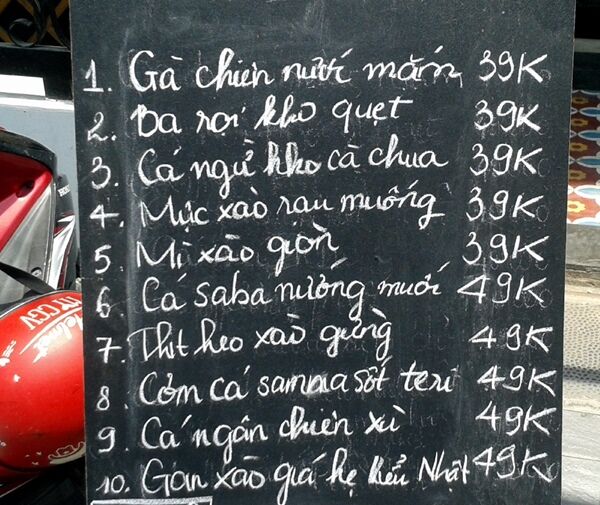 1. Gà chiên nước mắm 39K
2. Ba rọi kho quẹt 39K
3. Cá ngừ kho cà chua 39K
4. Mực xào rau muống 39K
5. Mì xào giòn 39K
6. Cá saba nướng muối 49K
7. Thịt heo xào gừng 49K
8. Cơm cá sanma sốt teri 49K
9. Cá ngân chiên xù 49K
10. Gan xào giá hẹ kiểu Nhật 49K